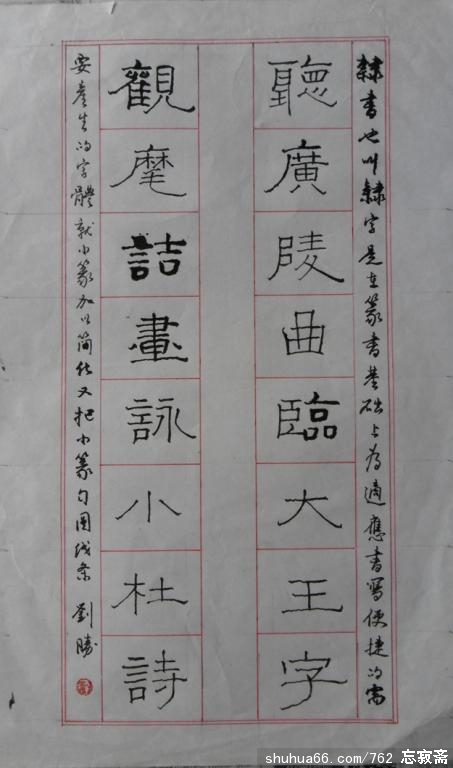 隸書也叫隸字是在篆書基础上为適應書写便捷的需
聽廣陵曲臨大王字
觀麾詰畫詠小杜詩
要產生的字體就小篆加以简化又把小篆匀圆线条
劉勝
shuhua66.com/762 忘寂斋